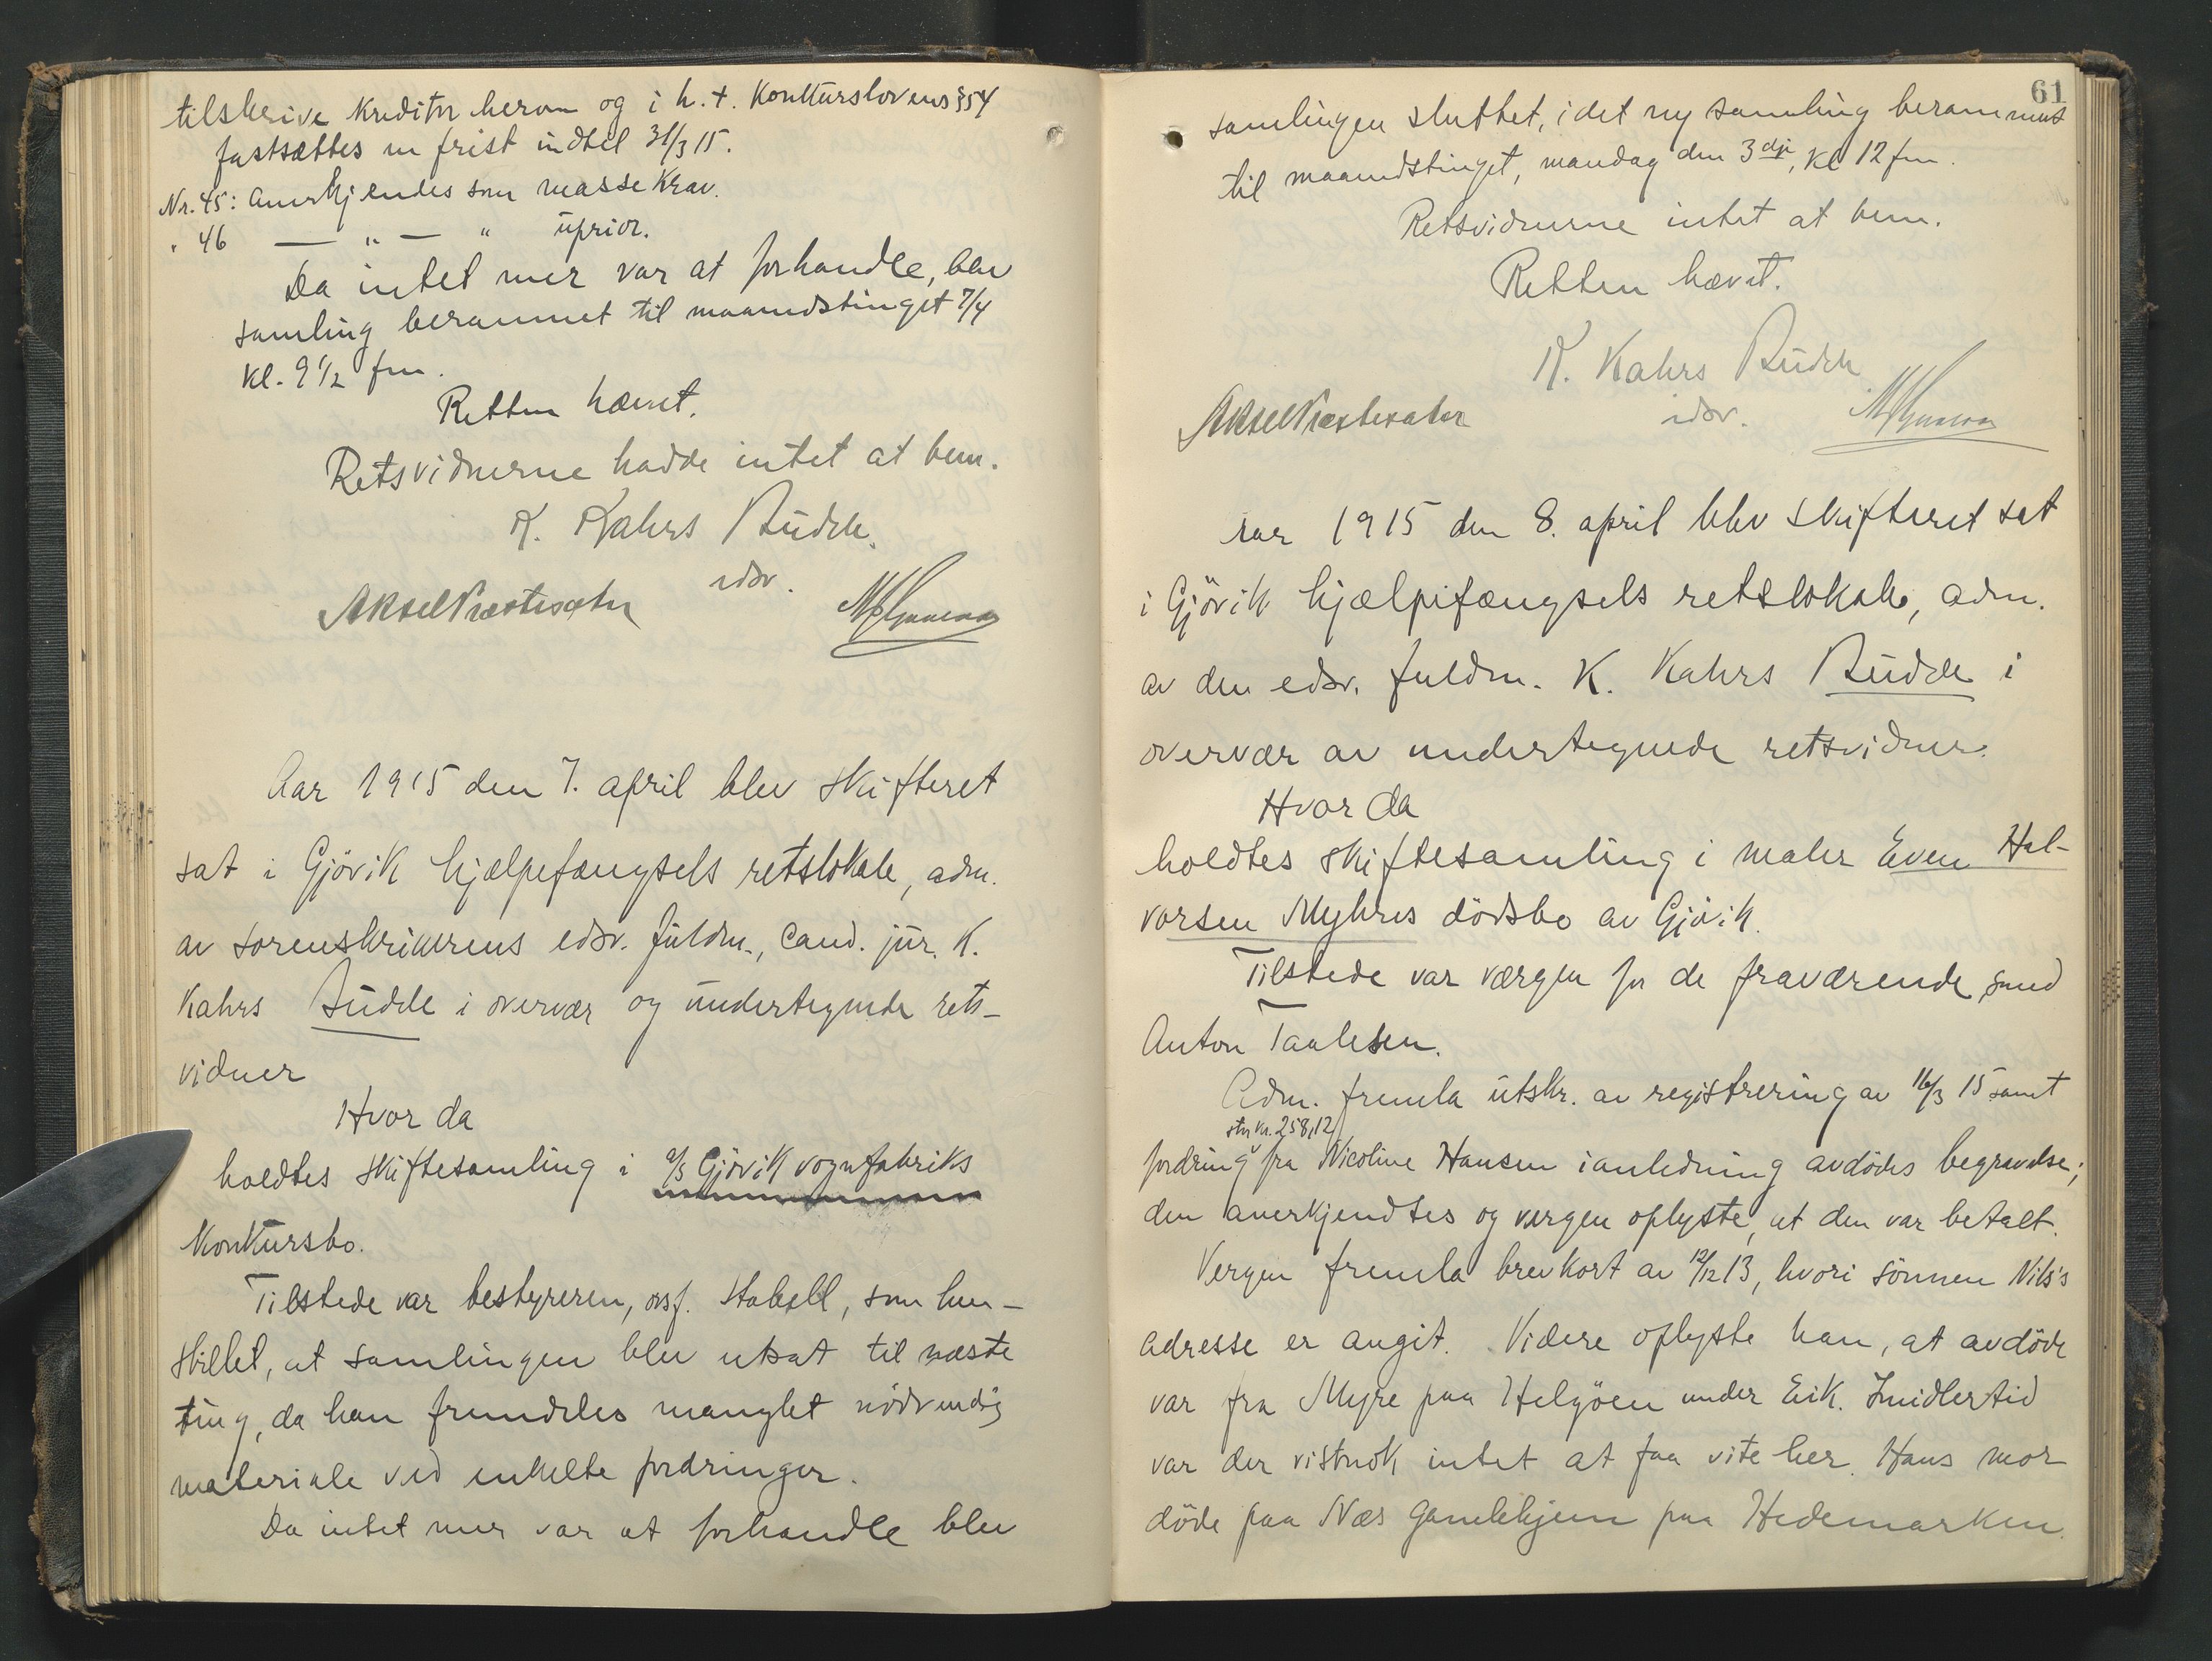 tilskrive kreditor herom og i h.t. Konkurslovens § 54
fastsættes en frist indtil 31/3 15.
Nr. 45: anerkjendes som massekrav.
" 46 — " — " uprior.
Da intet mer var at forhandle, blev
samling berammet til maanedstinget 7/4
kl. 9 1/2 fm.
Retten hævet.
Retsvidnerne hadde intet at bem.
K. Kahrs Budde
edsv.
Aksel Præstesæter
Aar 1915 den 7. april blev skifteret
sat i Gjövik hjælpefængsels retslokale, adm.
av sorenskriverens edsv. fuldm., cand. jur. K.
Kahrs Budde i overvær og undertegnede rets-
vidner
Hvor da
holdtes skiftesamling i a/s Gjövik vognfabriks
konkursbo.
Tilstede var bestyreren, ovsf. Stabell, som hen-
stillet, at samlingen blev utsat til næste
ting, da han fremdeles manglet nödvendig
materiale ved enkelte fordringer.
Da intet mer var at forhandle blev
61
samlingen sluttet, idet ny samling berammes
til maanedstinget, mandag den 3dje, kl 12 fm.
Retsvidnerne intet at bem.
Retten hævet.
K. Kahrs Budde
edsv.
Aksel Præstesæter
Aar 1915 den 8. april blev skifteret sat
i Gjövik hjælpefængsels retslokale, adm.
av den edsv. fuldm. K. Kahrs Budde i
overvær av undertegnede retsvidner.
Hvor da
holdtes skiftesamling i maler Even Hal-
vorsen Myhres dödsbo av Gjövik.
Tilstede var værgen for de fraværende, smed
Anton Taalesen.
Adm. fremla utskr. av registrering av 16/3 15 samt
stor kr. 258,12
fordring fra Nicoline Hansen i anledning avdödes begravelse;
den anerkjendtes og vergen oplyste, at den var betalt.
Vergen fremla brevkort av 12/12 13, hvori sönnen Nils's
adresse er angit. Videre oplyste han, at avdöde
var fra Myre paa Helgöen under Eik. Imidlertid
var der vistnok intet at faa vite her. Hans mor
döde paa Næs gamlehjem paa Hedemarken.